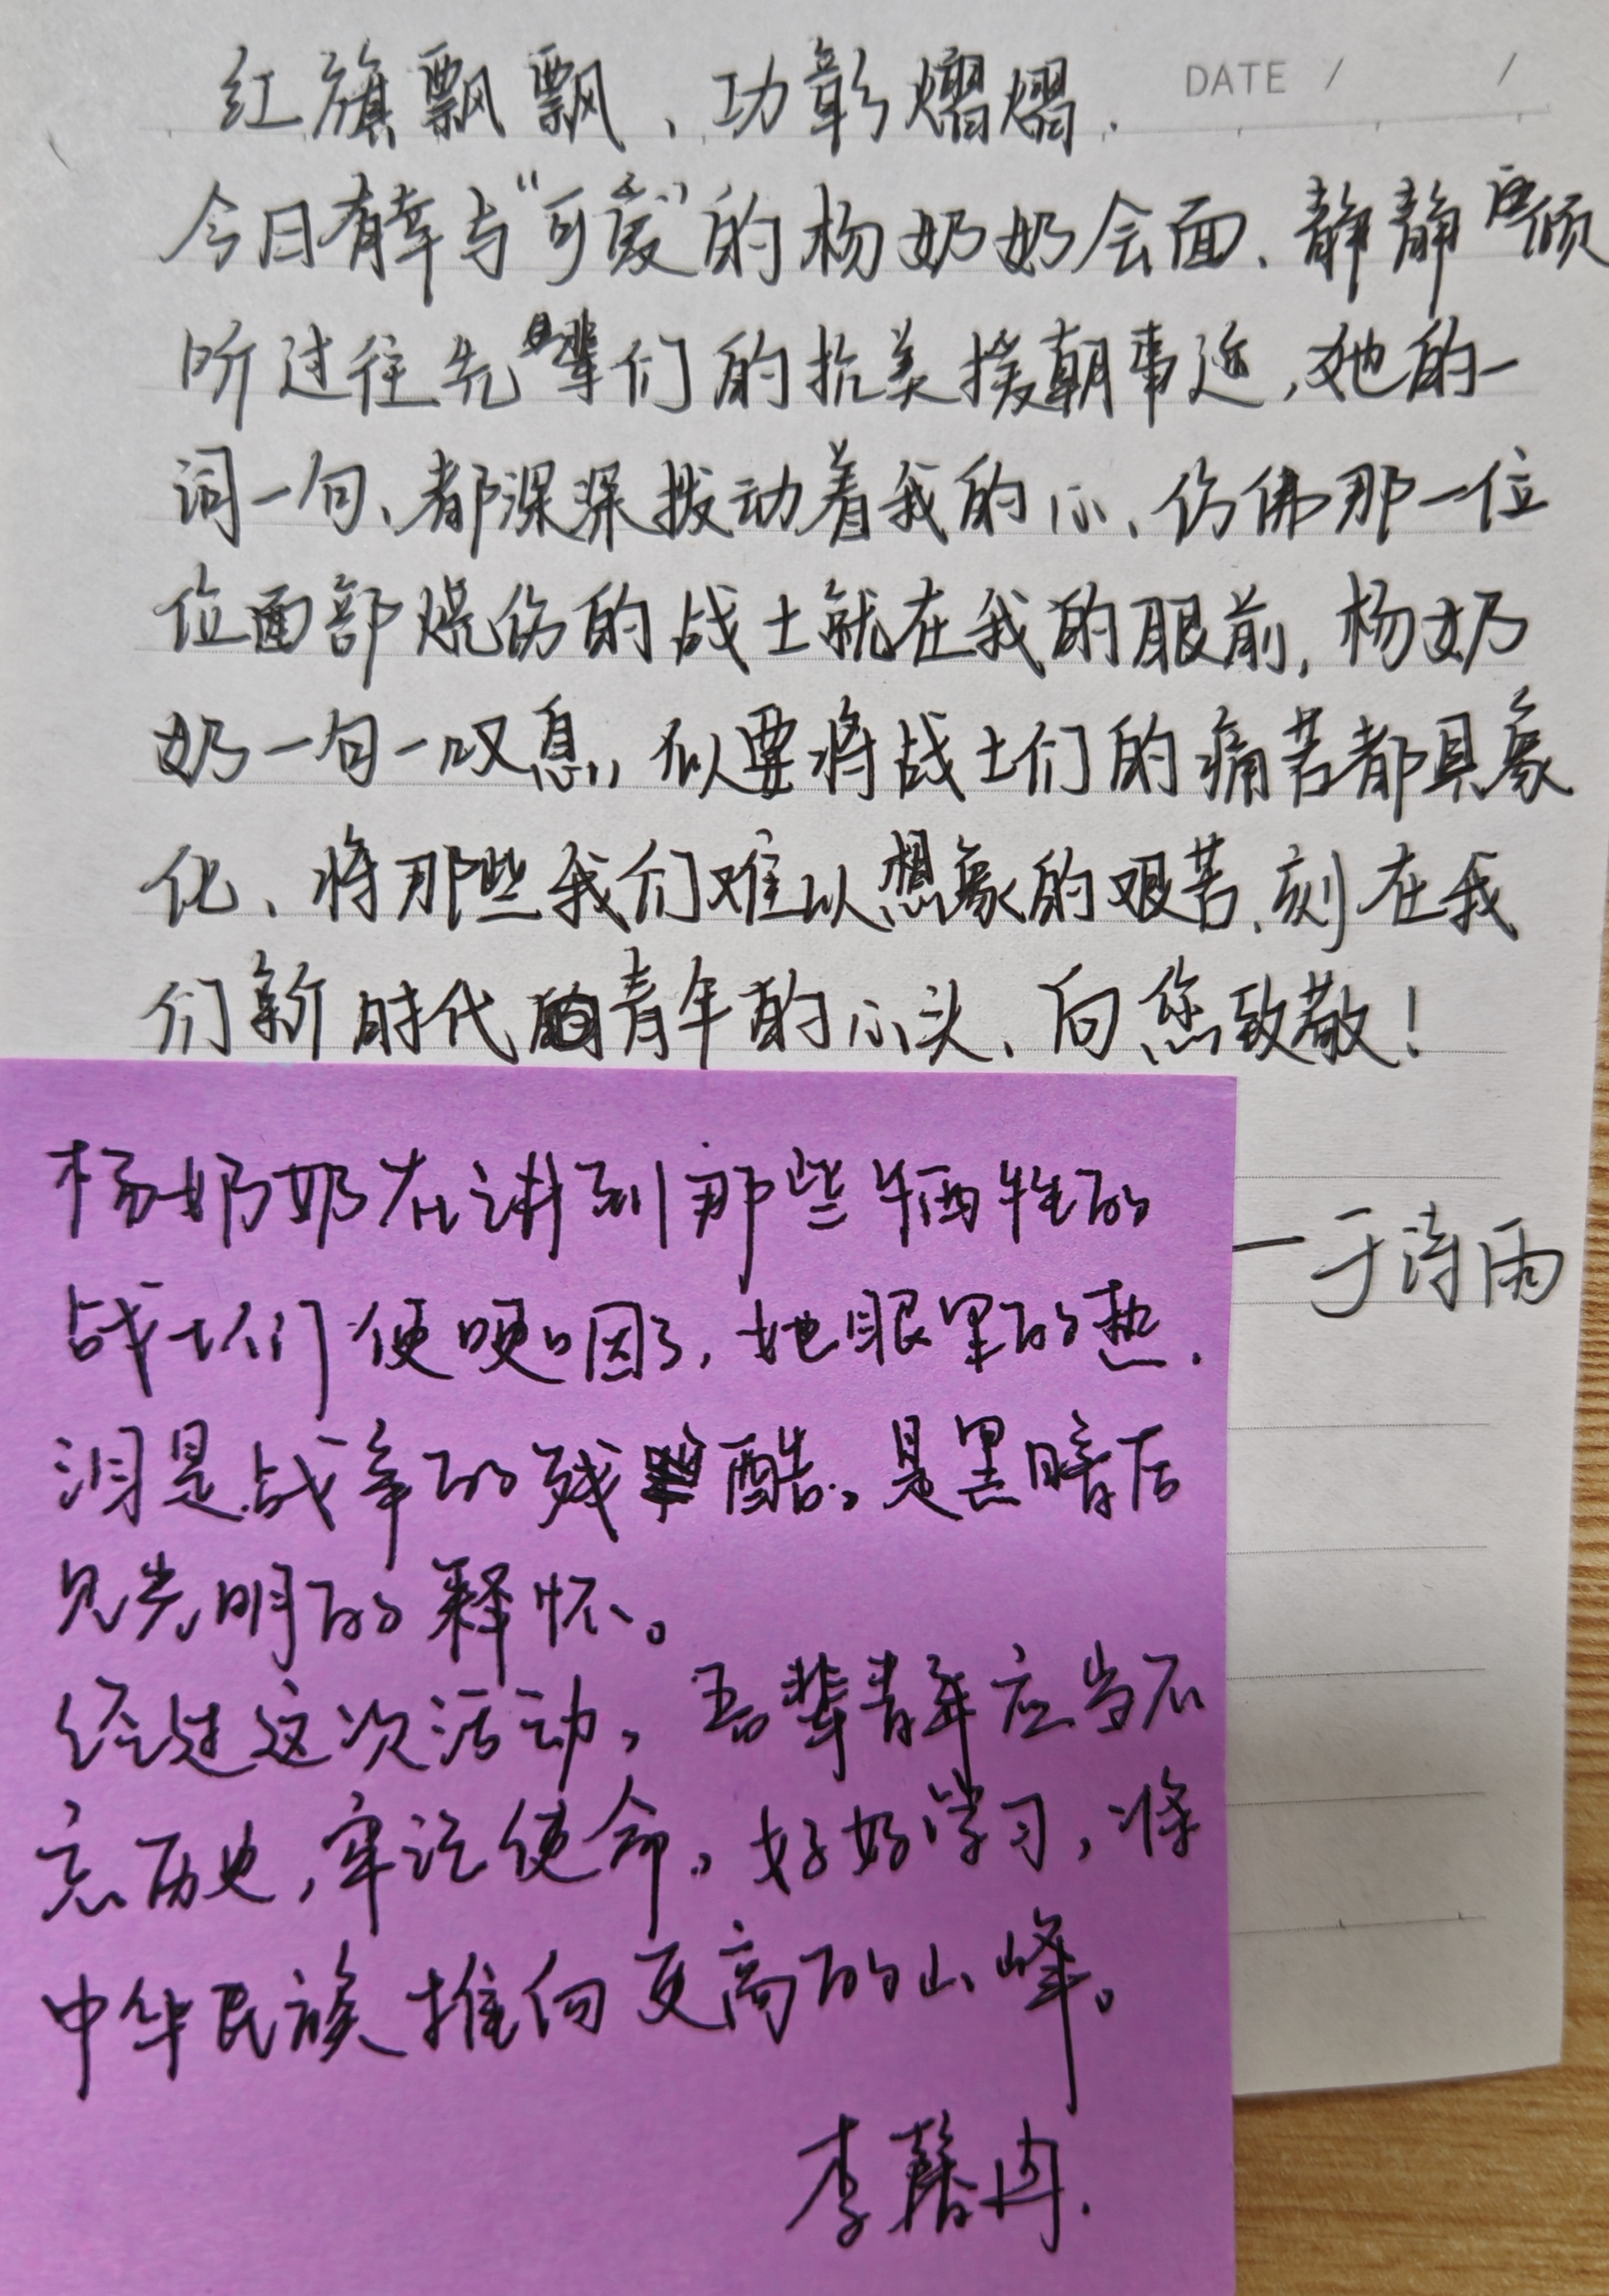 DATE / /
红旗飘飘、功彰熠熠.
今日有幸与“可爱”的杨奶奶会面、静静倾
听过往先辈们的抗美援朝事迹,她的一
词一句、都深深拨动着我的心、仿佛那一位
位面部烧伤的战士就在我的眼前,杨奶
奶一句一叹息,似要将战士们的痛苦都具象
化、将那些我们难以想象的艰苦,刻在我
们新时代青年的心头、向您致敬!
一于诗雨
杨奶奶在讲到那些牺牲的
战士们便哽咽了,她眼里的热
泪是战争的残酷。是黑暗后
见光明的释怀。
经过这次活动,吾辈青年应当不
忘历史,牢记使命。好好学习,将
中华民族推向更高的山峰。
李馨冉.